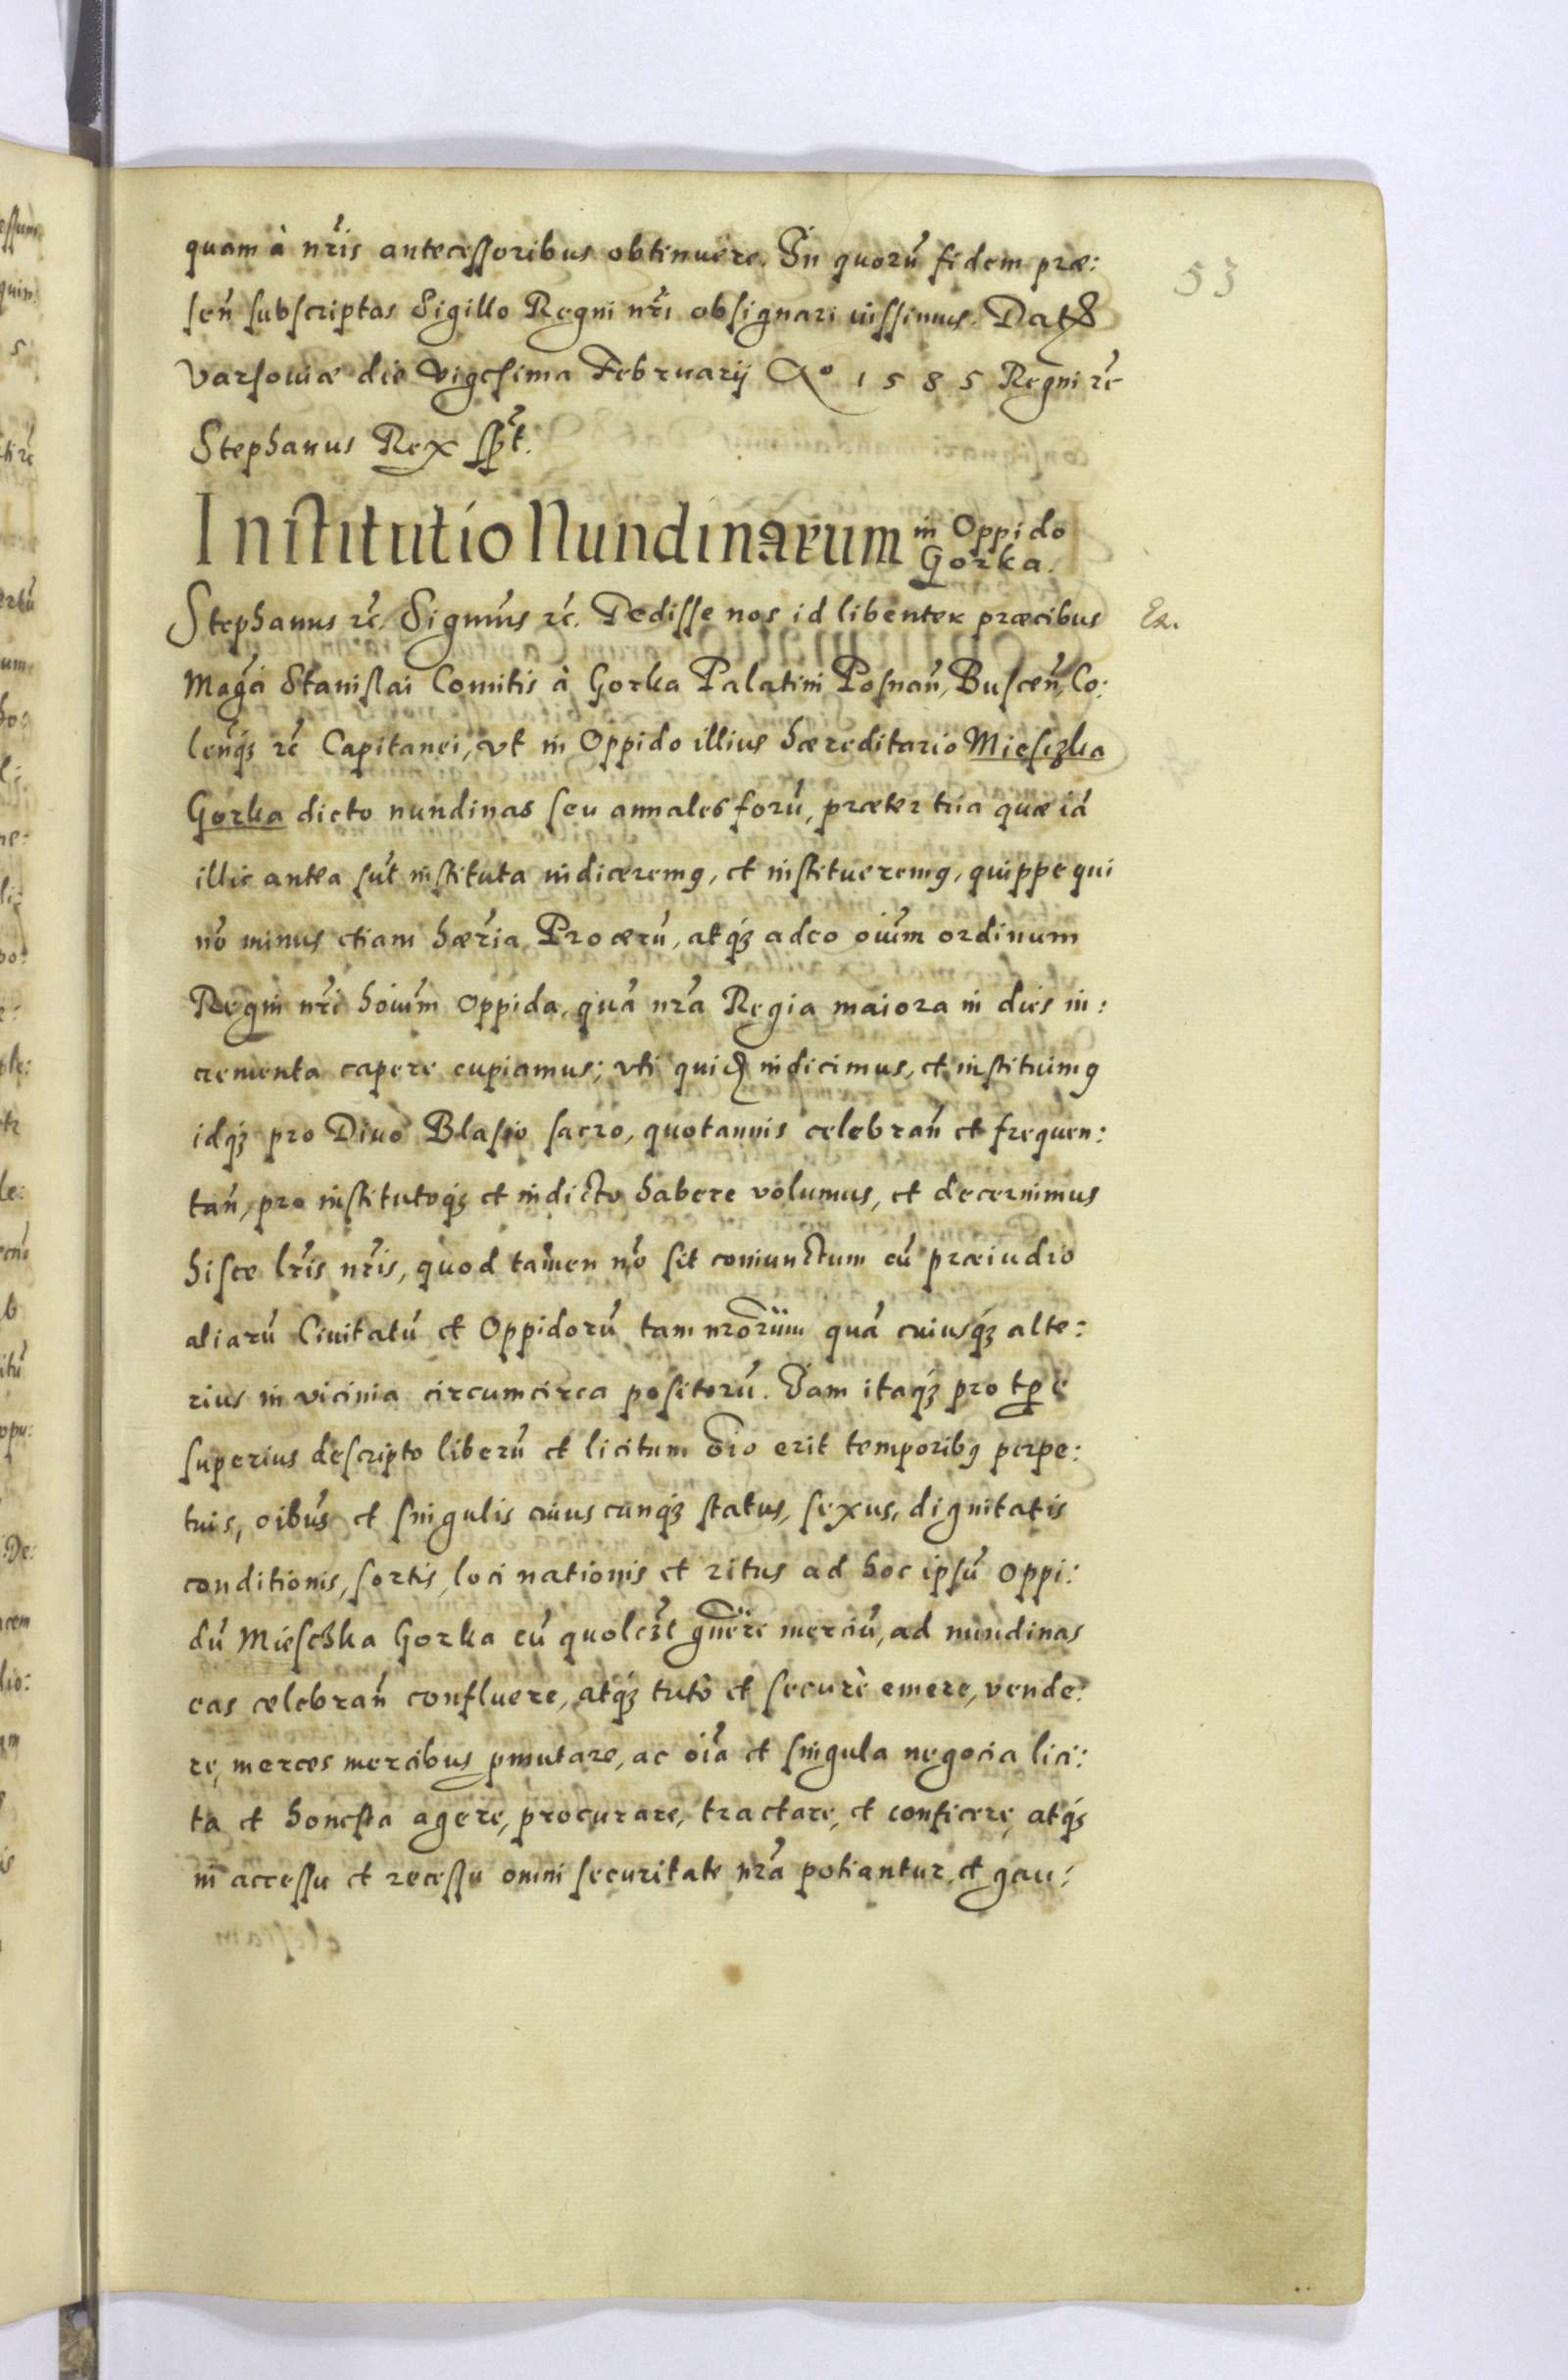 53
quam à nr̃is antecessoribus obtinuere. In quorũ fidem præ:
señ subscriptas Sigillo Regni nr̃i obsignari iussimus. Dat
Varsouiæ die Vigesima Februarij Aº 1585 Regni etc̃
Stephanus Rex sp̃t.
Institutio Nundinarum in Oppido
Gorka.
Stephanus etc̃. Signm̃s etc̃. Dedisse nos id libenter præcibus Ex.
Magcá Stanislai Comitis à Gorka Palatini Posnañ, Busceñ, Co:
leñq́ꝫ etc̃ Capitanei, vt in Oppido illius hæreditario Miesczka
Gorka dicto nundinas seu annales forũ, præter tria quæ iá
illic antea sũt instituta indiceremꝰ, et institueremꝰ, quippe qui
nõ minus etiam hær̃ia Procerũ, atq́ꝫ adeo oĩum ordinum
Regni nr̃i hoĩum Oppida, quá nr̃a Regia maiora in dies in:
crementa capere cupiamus; vti quidẽ indicimus, et instituimꝰ
idq́ꝫ pro Diuo Blasio sacro, quotannis celebrañ et frequen:
tañ, pro institutoq́ꝫ et indicto habere volumus, et decernimus
hisce lr̃is nr̃is, quod tamen nõ sit coniunctum cũ præiudio
aliarũ Ciuitatũ et Oppidorũ tam nrõrum quá cuiusq́ꝫ alte:
rius in vicinia circumcirca positorũ. Iam itaq́ꝫ pro tꝑe
superius descripto liberũ et licitum õio erit temporibꝰ perpe:
tuis, oĩbus et singulis cuiuscunq́ꝫ status, sexus, dignitatis
conditionis, sortis, loci nationis et ritus ad hoc ipsũ Oppi:
dũ Miesczka Gorka cũ quolcꝫt gñere merciũ, ad nundinas
eas celebrañ confluere, atq́ꝫ tutò et securè emere, vende:
re, merces mercibus ꝑmutare, ac oĩa et singula negocia lici:
ta et honesta agere, procurare, tractare, et conficere, atq́ꝫ
in accessu et recessu omni securitate nr̃a potiantur, et gau: